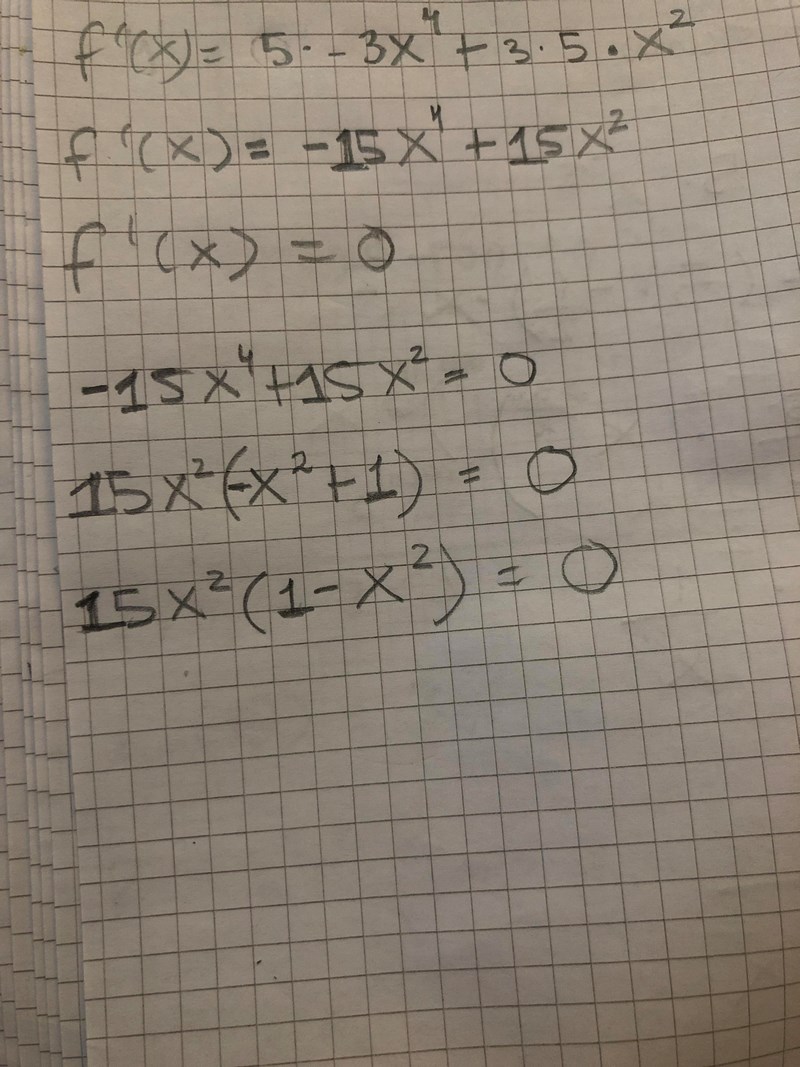 f'(x) = 5·-3x⁴ + 3·5·x²
f'(x) = -15x⁴ + 15x²
f'(x) = 0
-15x⁴ + 15x² = 0
15x²(-x² + 1) = 0
15x²(1 - x²) = 0